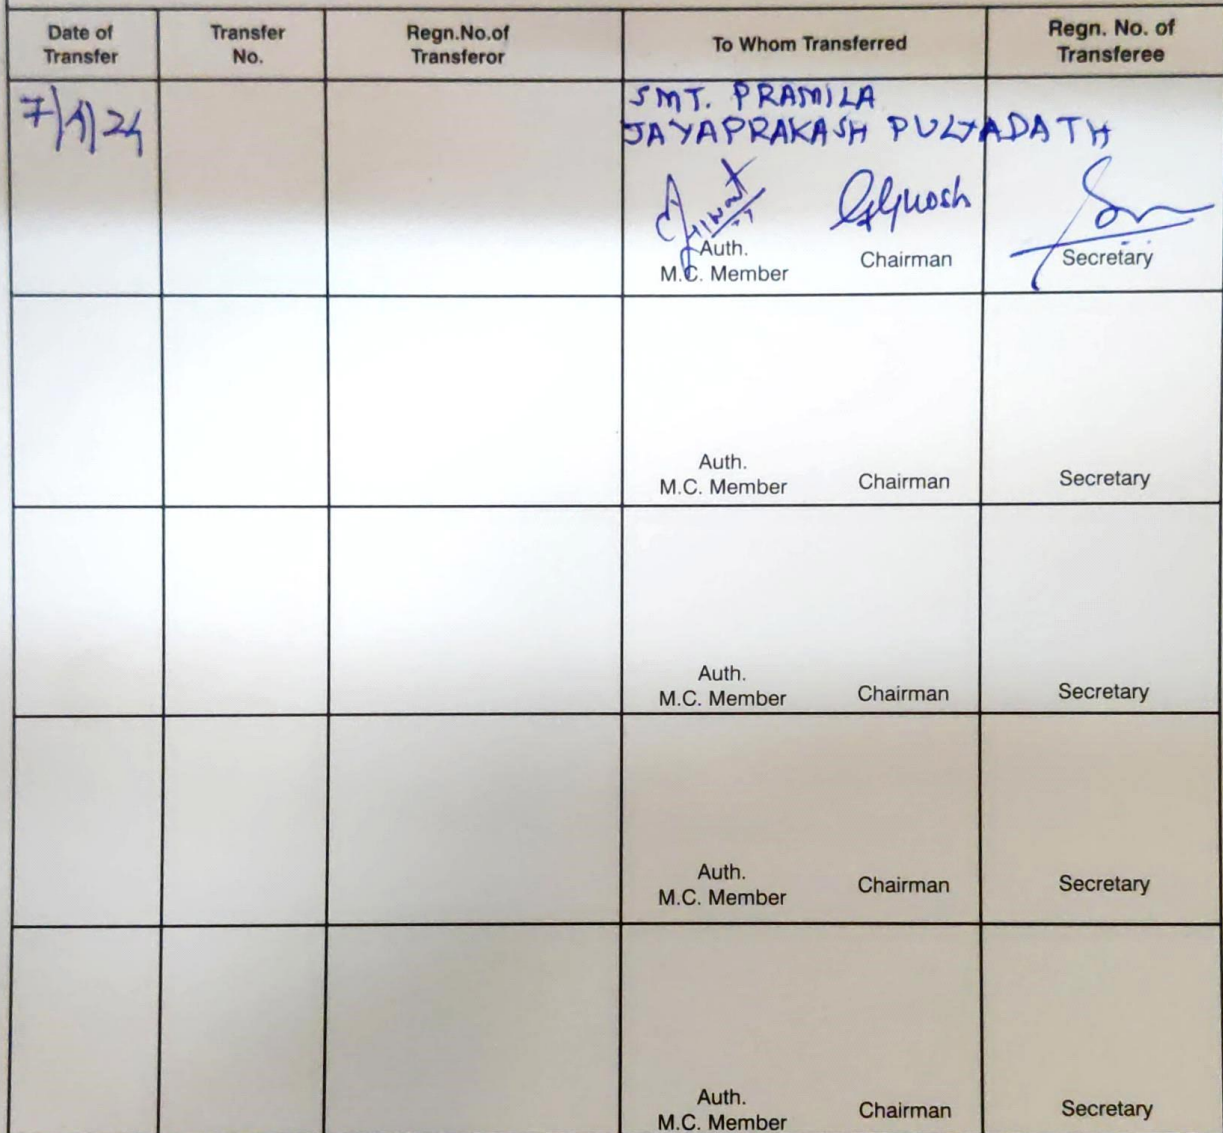 Date of Transfer
Transfer No.
Regn.No.of Transferor
To Whom Transferred
Regn. No. of Transferee
7/1/24
SMT. PRAMILA
JAYAPRAKASH PULYADATH
GGhosh
Auth.
M.C. Member
Chairman
Secretary
Auth.
M.C. Member
Chairman
Secretary
Auth.
M.C. Member
Chairman
Secretary
Auth.
M.C. Member
Chairman
Secretary
Auth.
M.C. Member
Chairman
Secretary